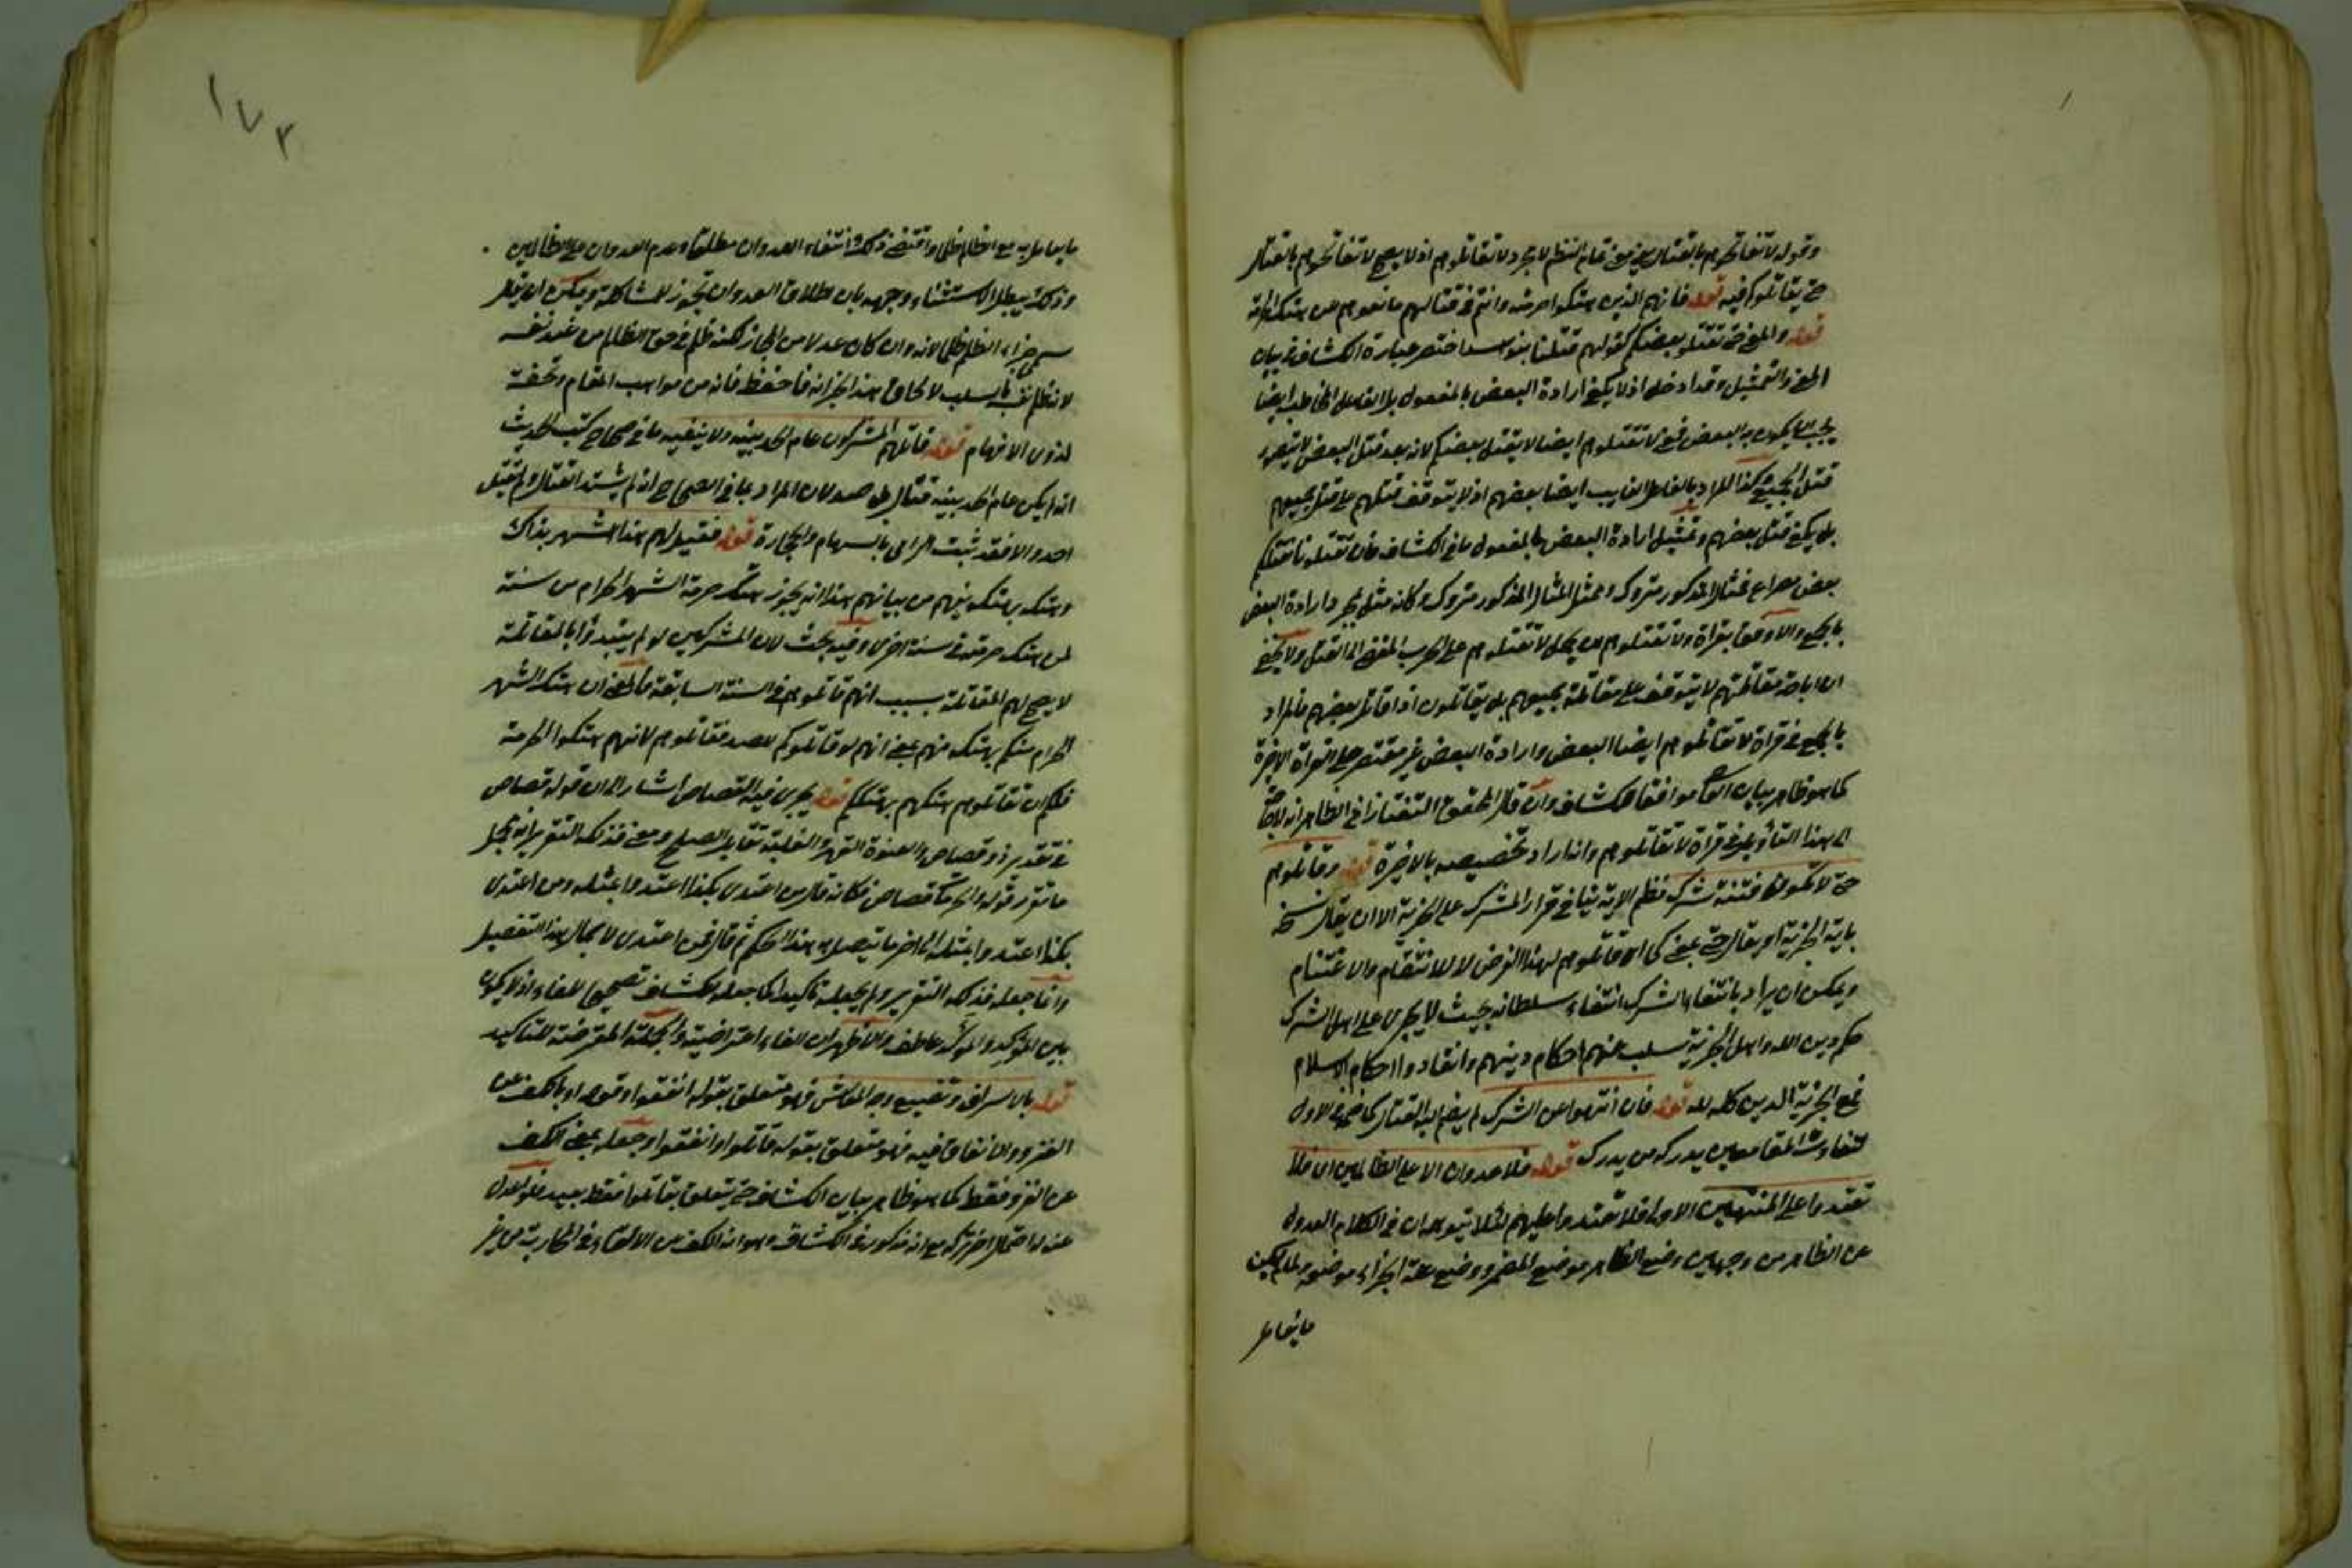 وقوله لا تفاتحوهم بالقتال بيان معنى تمام النظم لا مجرد لا تقاتلوهم اذ لا يصح لا تفاتحوهم بالقتال
حتى يقاتلوكم فيه قوله فانهم الذين هتكوا حرمته وانتم في قتالهم مانعوهم من هتك الحرمة
قوله والمعنى حتى يقتلوا بعضكم كقولهم قتلنا بنو اسد اختصر عبارة الكشاف في بيان
المعنى والتمثيل وقد ادخل اذ لا يكفي ارادة البعض بالمفعول بل الفاعل المخاطب ايضا
يجب ان يكون به البعض فمعنى لا تقتلوهم ايضا لا يقتل بعضكم لانه بعد قتل البعض لا يتصور
قتل الجميع وكذا المراد بالفاعل الغايب ايضا بعضهم اذ لا يتوقف قتلهم على قتل جميعهم
بل يكفي قتل بعضهم وتمثيل ارادة البعض بالمفعول ما في الكشاف فان تقتلونا نقتلكم
بعض مصراع فمثال المذكور متروك وممثل المثال المذكور متروك وكانه مثل بمجرد ارادة البعض
بالجمع والاوفق بقراءة ولا تقتلوهم ان يحمل لا تقتلوهم على الحرب المفضي الى القتل ولا يخفى
ان اباحة مقاتلتهم لا يتوقف على مقاتلة جميعهم بل يقاتلون اذا قاتل بعضهم فالمراد
بالجمع في قراءة لا تقاتلوهم ايضا البعض وارادة البعض غير مقتصر على القراءة الاخيرة
كما هو ظاهر بيان القاضي موافقا للكشاف وان قال المحقق التفتازاني الظاهر انه لا حاجة
الى هذا التأويل في قراءة لا تقاتلوهم وانه اراد تخصيصه بالاخيرة قوله وقاتلوهم
حتى لا تكون فتنة شرك نظم الاية ينافي قرار المشرك على الجزية الا ان يقال نسخ
باية الجزية او يقال حتى بمعنى كي اي قاتلوهم لهذا الغرض لا للانتقام والاغتنام
ويمكن ان يراد بانتفاء الشرك انتفاء سلطانه بحيث لا يجري على اهل الشرك
حكم دين الله واهل الجزية سلب عنهم احكام دينهم وانقادوا احكام الاسلام
فمع الجزية الدين كله لله قوله فان انتهوا عن الشرك لم يضم اليه القتال كما ضم في الاول
لتفاوت المقامين يدركه من يدرك قوله فلا عدوان الا على الظالمين اي فلا
تعتدوا على المنتهين الاولى فلا تعتدوا عليهم لئلا يتوهم ان في الكلام العدول
عن الظاهر من وجهين وضع الظاهر موضع المضمر ووضع علة الجزاء موضعه ولما لم يكن
ما يعامل
١٧٣
ما يعامل به مع الظالم ظلما واقتضى ذلك انتفاء العدوان مطلقا وعدم العدوان على الظالمين
وذلك يبطل الاستثناء وجهه بان اطلاق العدوان تجوز للمشاكلة ويمكن ان يقال
سمي جزاء الظلم ظلما لانه وان كان عدلا من المجازي لكنه ظلم في حق الظالم من عند نفسه
لانه ظلم نفسه بالسلب لالحاق هذا الجزاء به فاحفظه فانه من مواهب المقام وتحفة
لذوي الافهام قوله قاتلهم المشركون عام الحديبية ولا ينفيه ما في صحاح كتب الحديث
انه لم يكن عام الحديبية قتال بل صد لان المراد بما في الصحاح انه لم يشتد القتال ولم يقتل
احد والا فقد ثبت الرامي بالسهام والحجارة قوله فقيل لهم هذا الشهر بذاك
وهتكه بهتكه يفهم من بيانهم هذا انه يجوز هتك حرمة الشهر الحرام من سنة
لمن هتك حرمته في سنة اخرى وفيه بحث لان المشركين لو لم يبتدؤا بالمقاتلة
لا يصح لهم المقاتلة بسبب انهم قاتلوهم في السنة السابقة فالمعنى ان هتك الشهر
الحرام منكم بهتكه منهم بمعنى انهم لو قاتلوكم للصد فقاتلوهم لانهم هتكوا الحرمة
فلكم ان تقاتلوهم هتكهم بهتككم قوله يجري فيه القصاص اشارة الى ان قوله قصاص
في تقدير ذو قصاص والعنوة القهر والغلبة تقابل الصلح ومعنى فذلكة التقرير انه مجمل
ما تقرر قوله والحرمات قصاص فكانه قال من اعتدى بكذا اعتدوا بمثله ومن اعتدى
بكذا اعتدوا بمثله الى اخر ما يتصل به هذا الحكم ثم قال فمن اعتدى لاجمال هذا التفصيل
وانما جعله فذلكة التقرير ولم يجعله تاكيدا كما جعله الكشاف تصحيحا للفاء اذ لا يكون
بين المؤكد والموكد عاطف والاظهر ان الفاء اعتراضية والجملة المعترضة للتاكيد
قوله بالاسراف وتضييع وجه المعاش فهو متعلق بقوله انفقوا وقوله او بالكف عن
الغزو والانفاق فيه فهو متعلق بقوله قاتلوا وانفقوا وجعله بمعنى الكف
عن الغزو فقط كما هو ظاهر بيان الكشاف حتى يتعلق بقاتلوا فقط بعيد فلو العدل
عنه له احتمال اخر تركه مع انه مذكور في الكشاف وهو انه الكف من الالقاء في المحاربة من غير